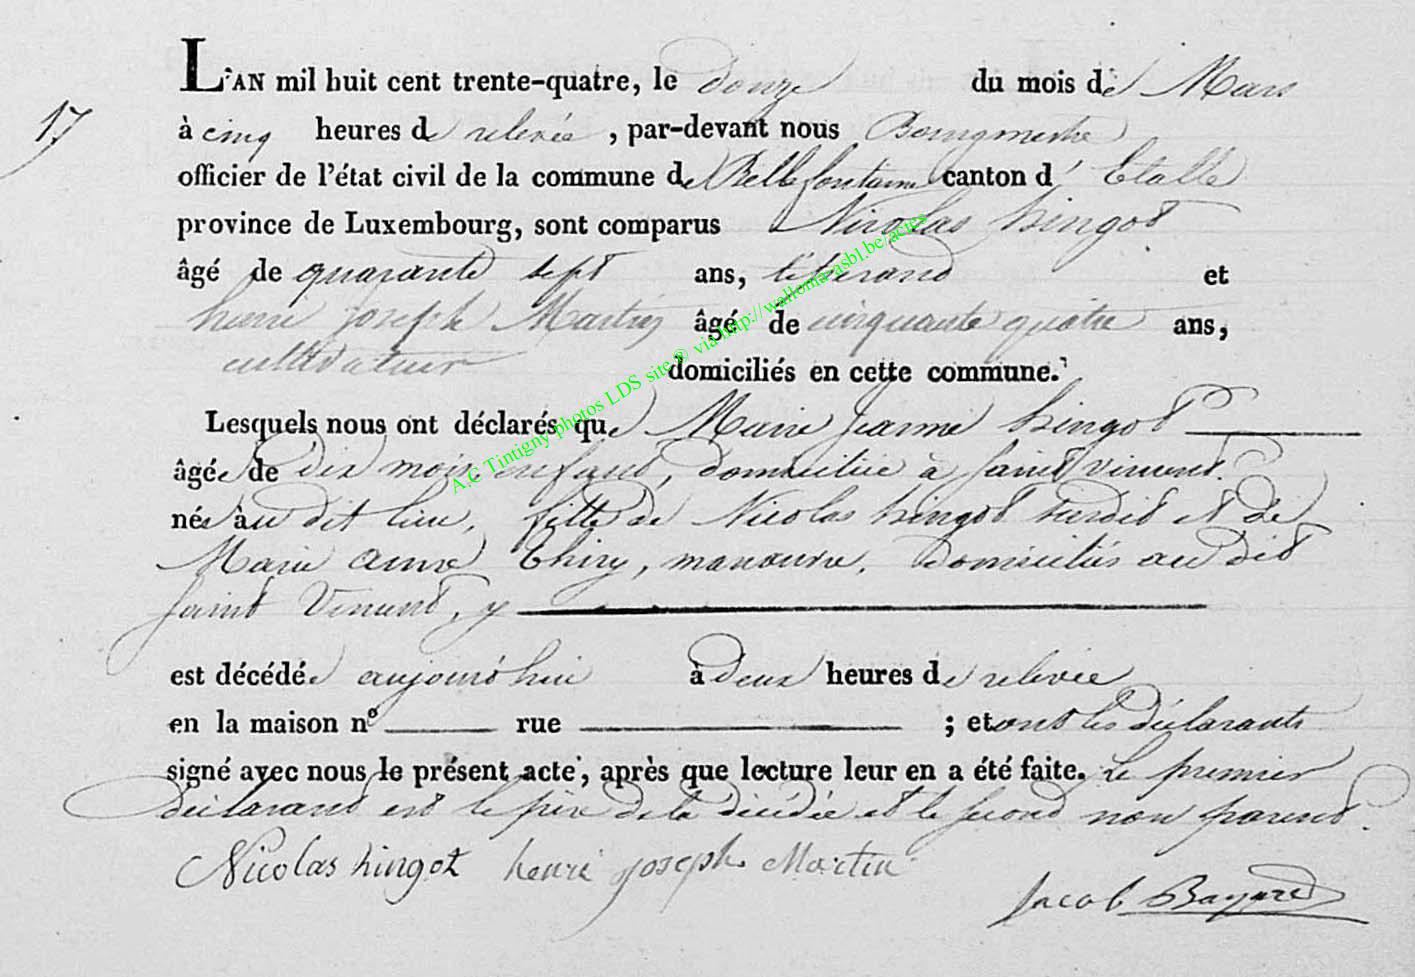 17
L'AN mil huit cent trente-quatre, le douze du mois de Mars
à cinq heures de relevée, par-devant nous Bourgmestre
officier de l'état civil de la commune de Bellefontaine canton d'Etalle
province de Luxembourg, sont comparus Nicolas hingot
âgé de quarante sept ans, tisserand et
henri joseph Martin âgé de cinquante quatre ans,
cultivateur domiciliés en cette commune.
Lesquels nous ont déclarés que Marie jeanne hingot
âgée de dix mois enfant, domiciliée à saint vincent.
née au dit lieu, fille de Nicolas hingot susdit et de
Marie anne thiry, manœuvre, domiciliés au dit
saint Vincent, y
est décédée aujourd'hui à deux heures de relevée
en la maison nº rue ; et ont les déclarants
signé avec nous le présent acte, après que lecture leur en a été faite. Le premier
déclarant est le père de la décédée et le second non parent.
Nicolas hingot henri joseph Martin
Jacob Bayard
A.C Tintigny photos LDS site ® via http://wallonia-asbl.be/actes